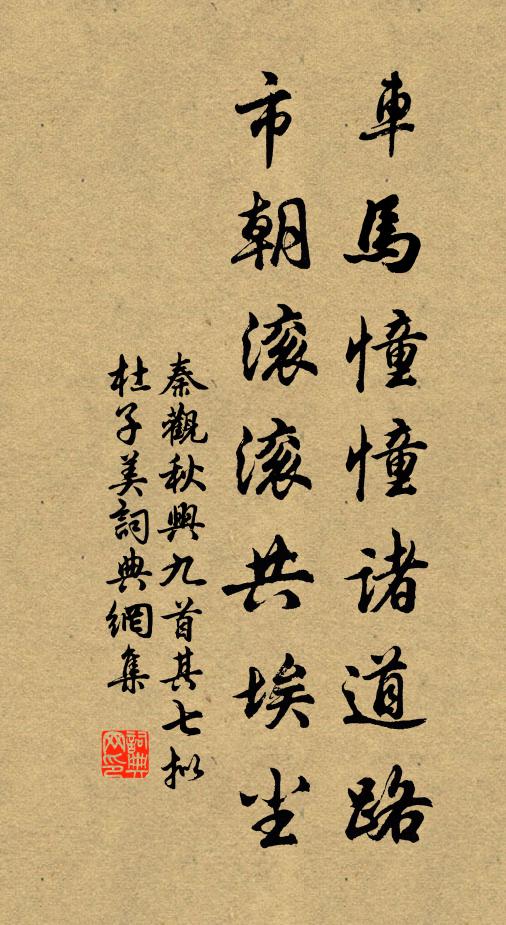 車馬憧憧諸道路
市朝滚滚共埃尘
秦觀秋興九首其七拟
杜子美詞典網集
詞典
网印